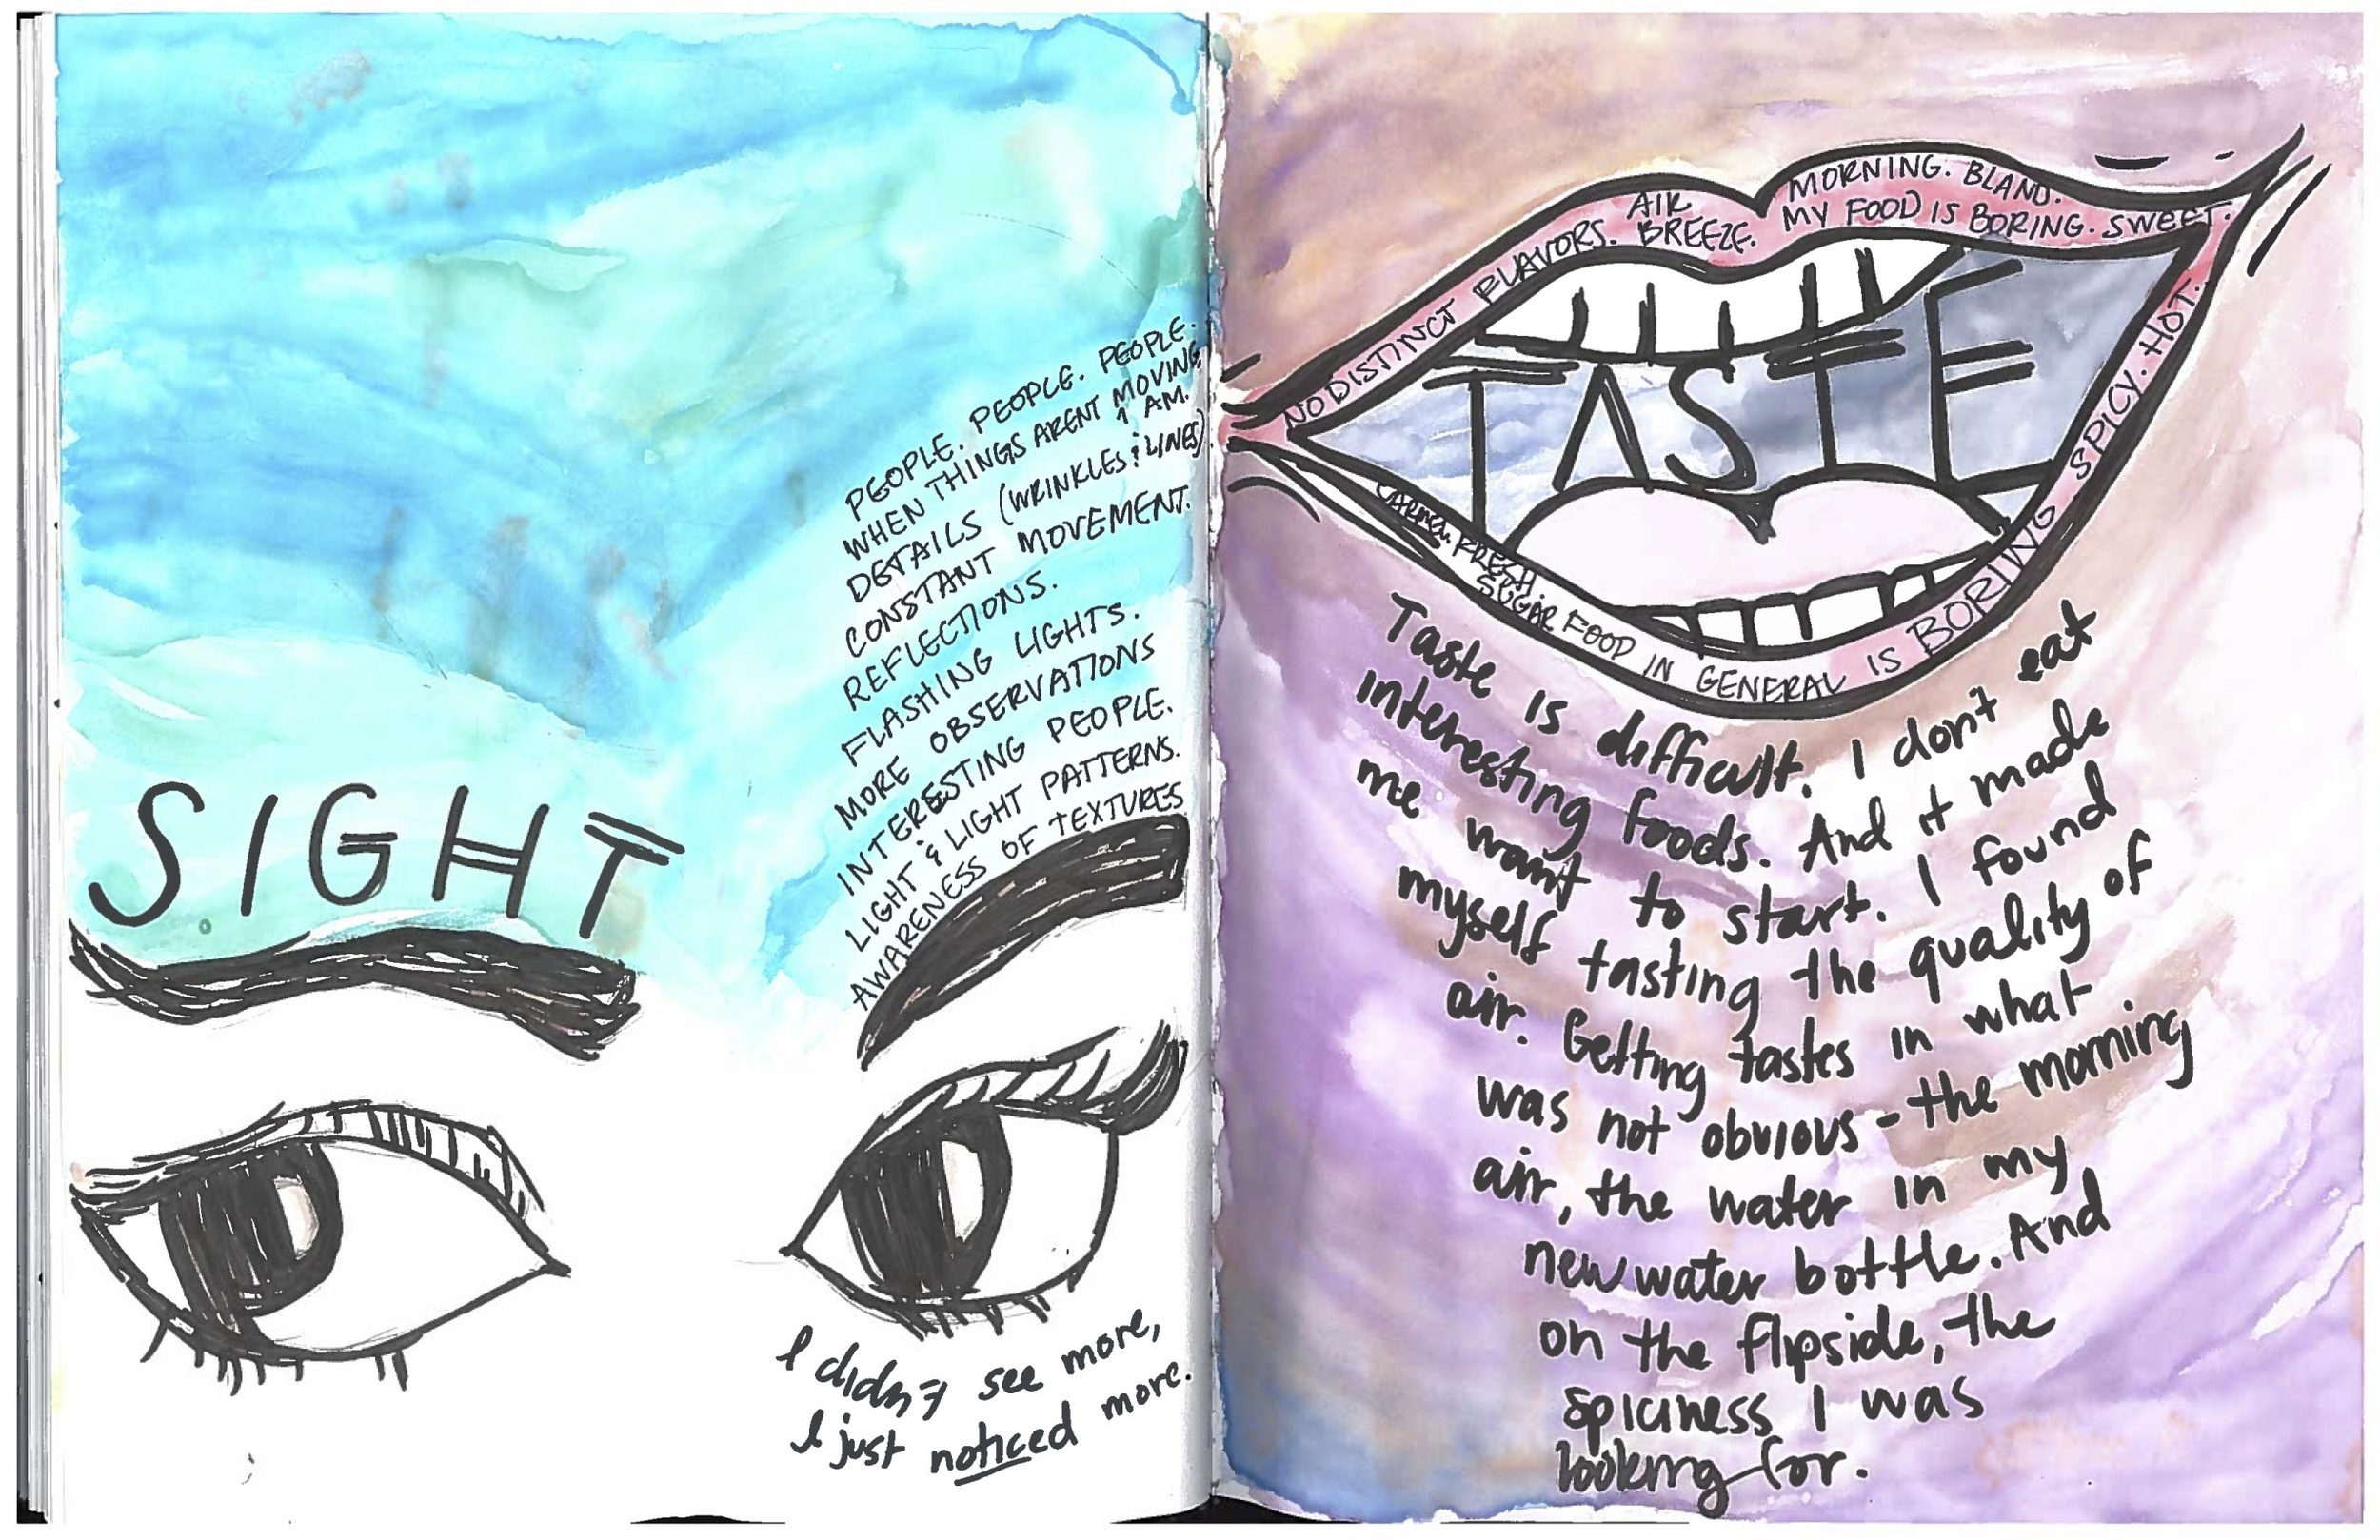 SIGHT
PEOPLE. PEOPLE. PEOPLE.
WHEN THINGS ARENT MOVING
I AM.
DETAILS (WRINKLES & LINES).
CONSTANT MOVEMENT.
REFLECTIONS.
FLASHING LIGHTS.
MORE OBSERVATIONS
INTERESTING PEOPLE.
LIGHT & LIGHT PATTERNS.
AWARENESS OF TEXTURES
I didn't see more,
I just noticed more.
NO DISTINCT FLAVORS. AIR
BREEZE.
MORNING. BLAND.
MY FOOD IS BORING. SWEET.
HOT.
SPICY.
TASTE
FRESH.
SUGAR FOOD IN GENERAL IS BORING
Taste is difficult. I don't eat
interesting foods. And it made
me want to start. I found
myself tasting the quality of
air. Getting tastes in what
was not obvious - the morning
air, the water in my
new water bottle. And
on the flipside, the
spiciness I was
looking for.